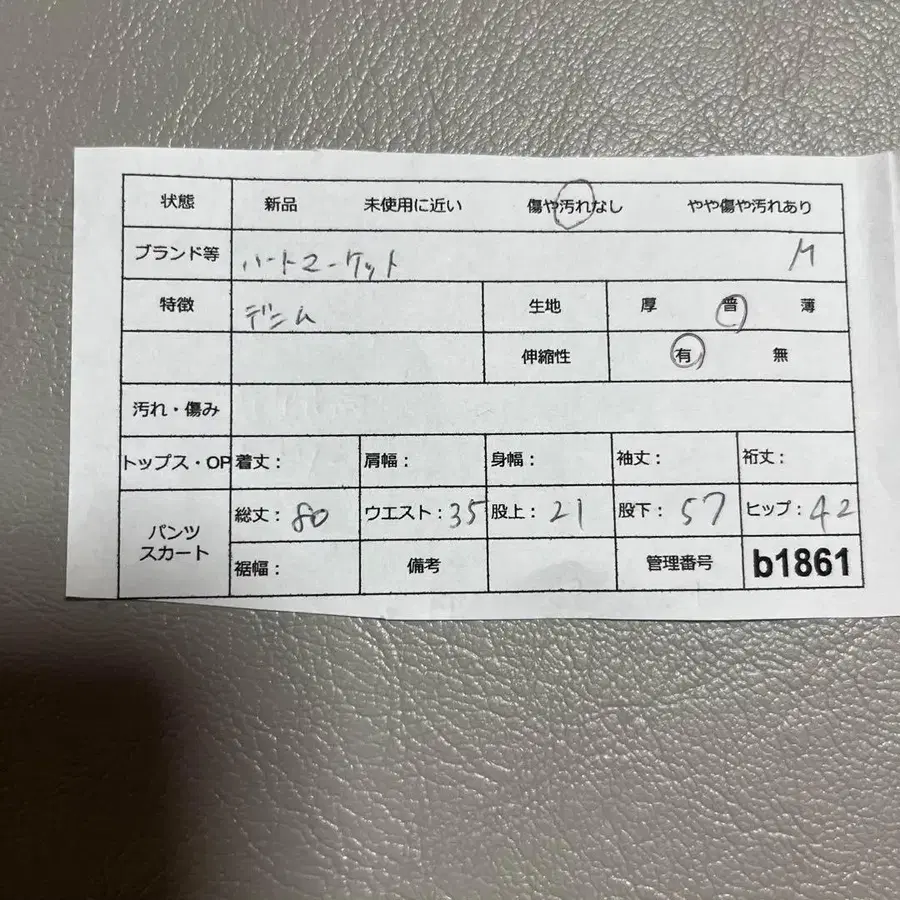 状態 新品 未使用に近い 傷や汚れなし やや傷や汚れあり
ブランド等 ハートマーケット M
特徴 デニム 生地 厚 普 薄
伸縮性 有 無
汚れ・傷み
トップス・OP 着丈： 肩幅： 身幅： 袖丈： 裄丈：
パンツ スカート 総丈：80 ウエスト：35 股上：21 股下：57 ヒップ：42
裾幅： 備考 管理番号 b1861